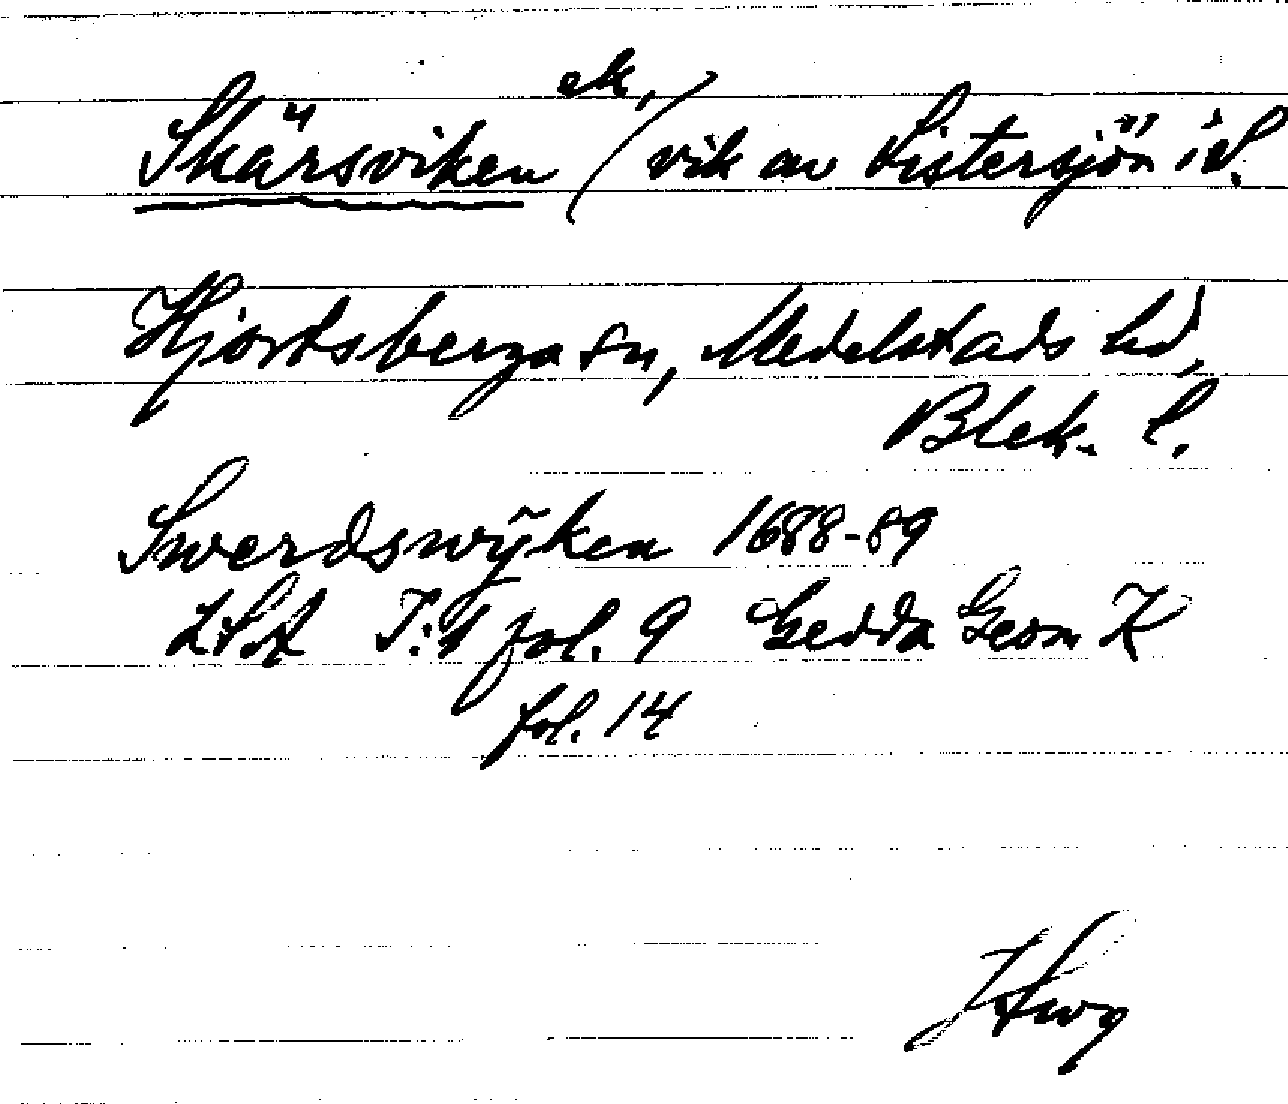 Skärsviken ek, (vik av Listersjön i S.
Hjortsberga sn, Medelstads hd,
Blek. l.
Swerdswÿken 1688-89
LSA I:1 fol. 9 Gedda Geom K
fol. 14